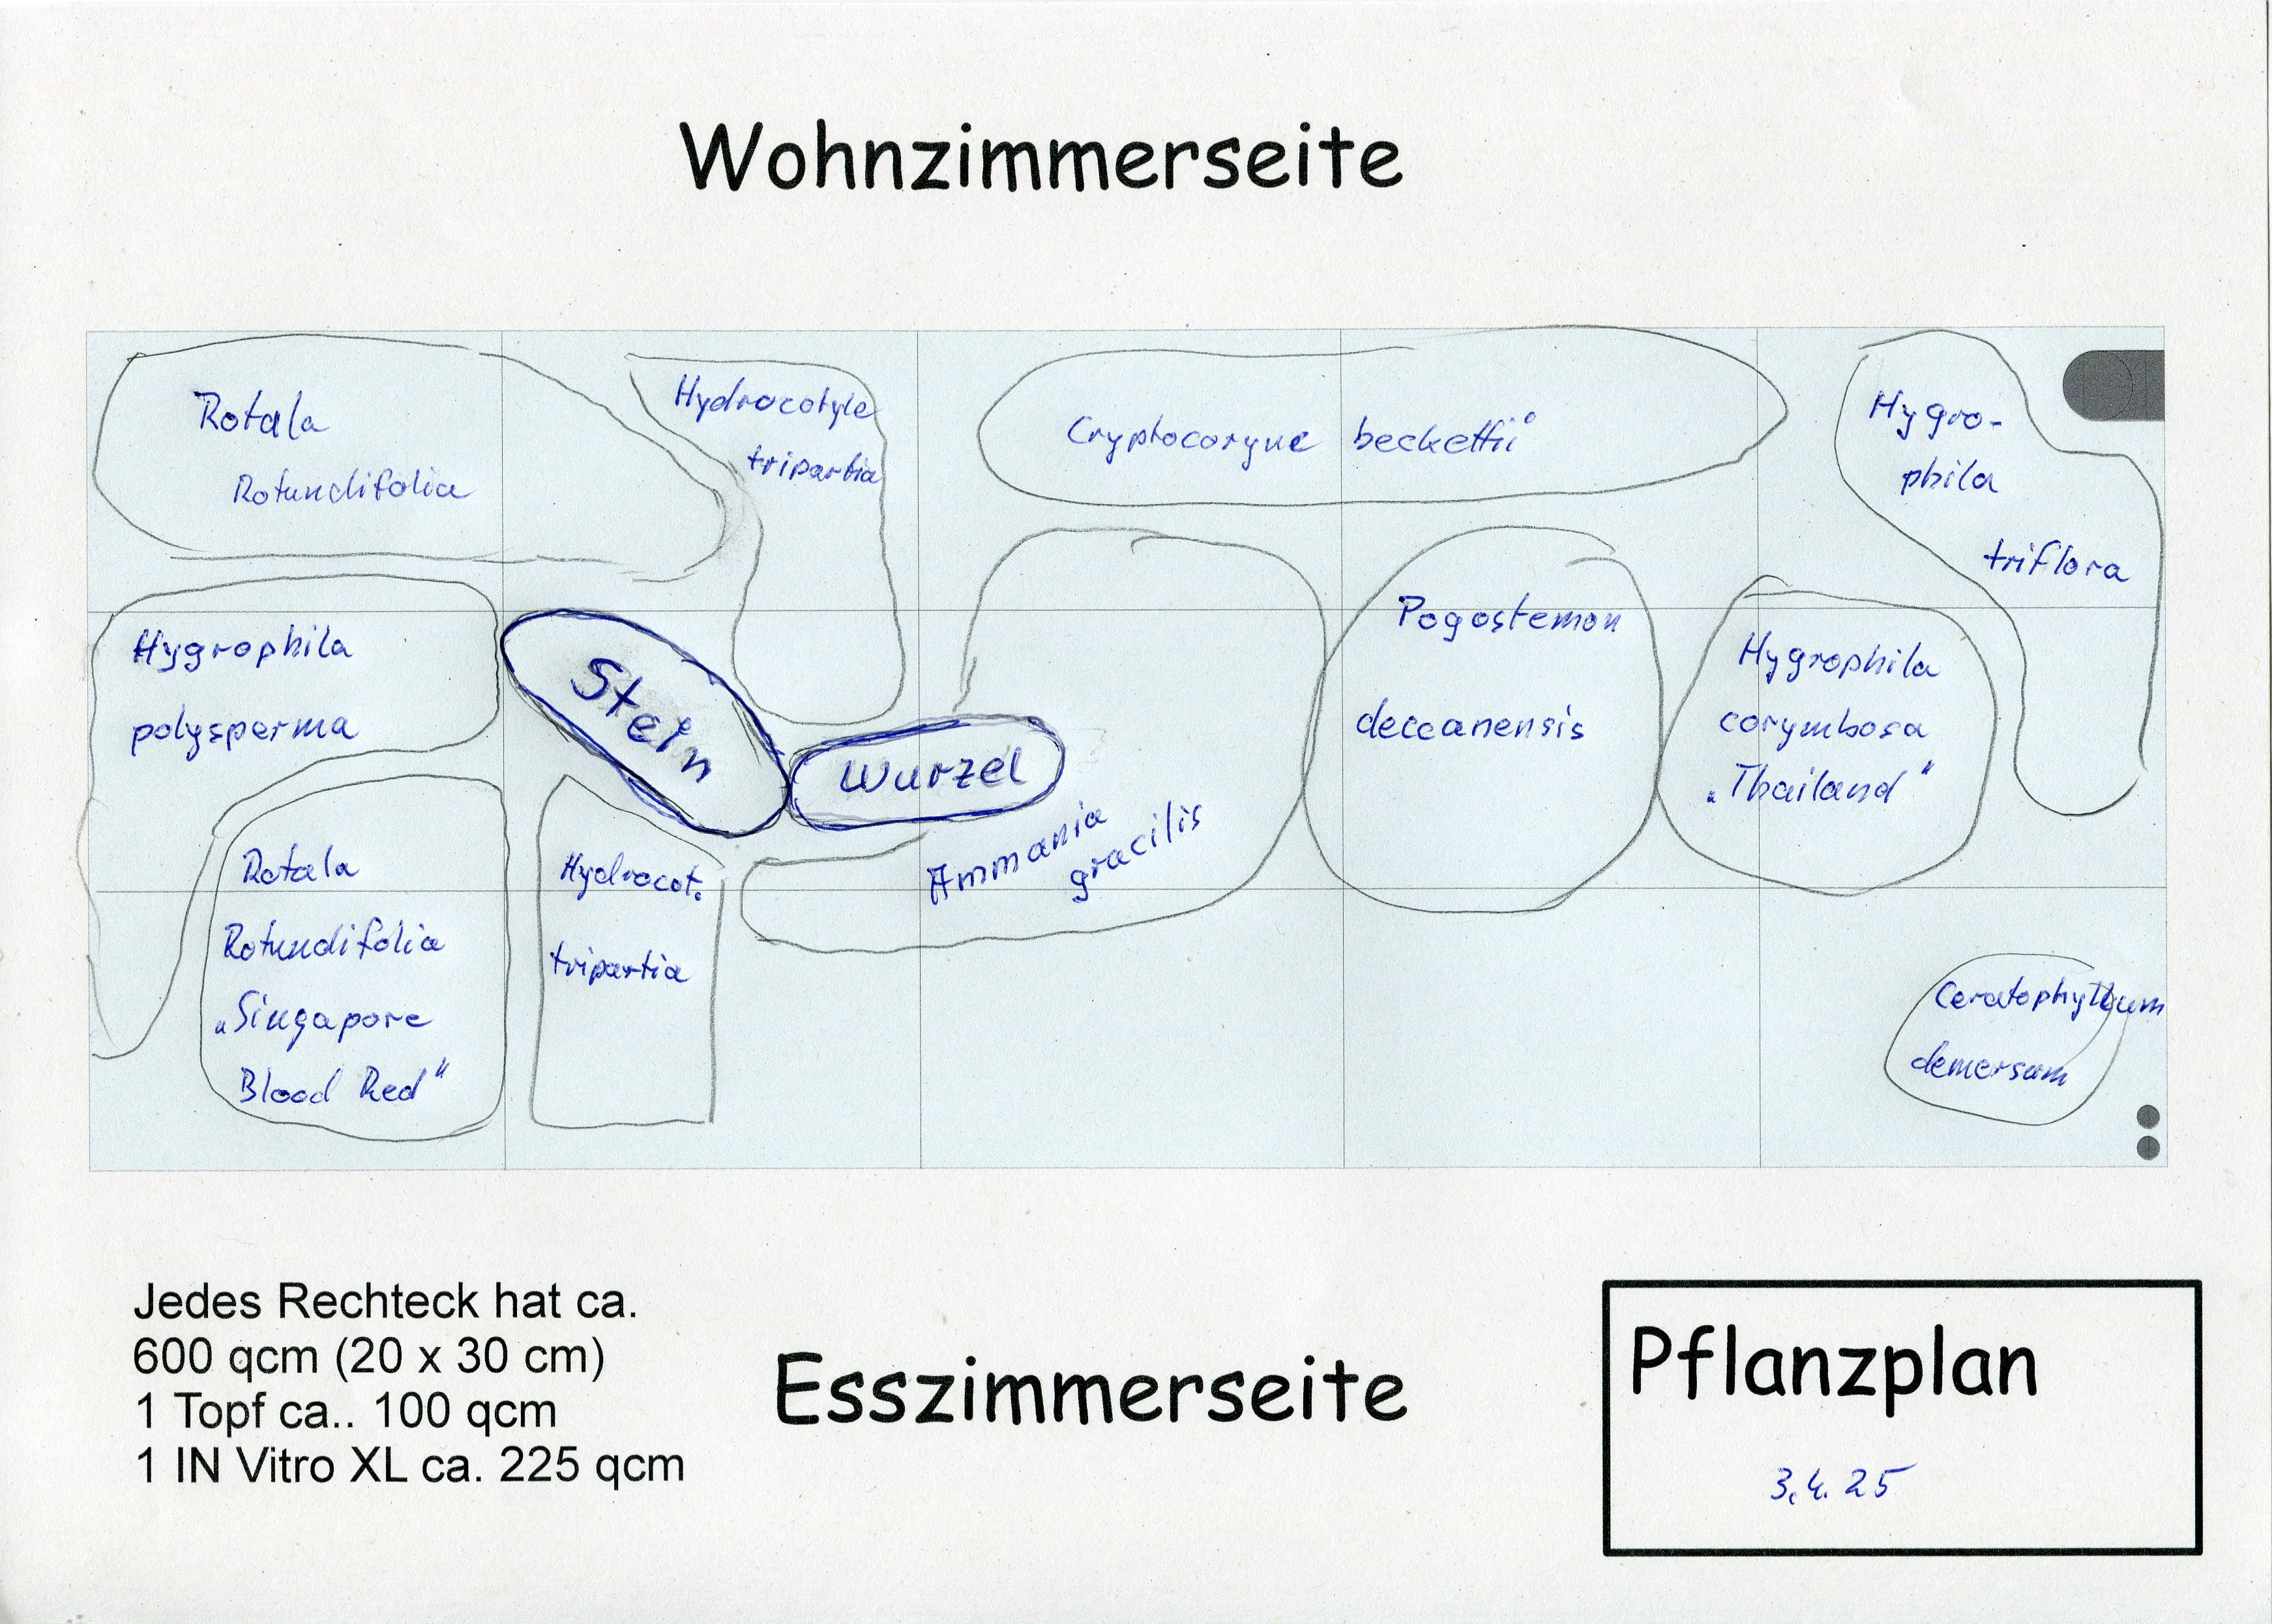 Wohnzimmerseite
Rotala
Rotundifolia
Hydrocotyle
tripartia
Cryptocoryne beckettii
Hygro-
phila
triflora
Hygrophila
polysperma
Stein
Wurzel
Pogostemon
deccanensis
Hygrophila
corymbosa
„Thailand"
Ammania
gracilis
Rotala
Rotundifolia
„Singapore
Blood Red"
Hydrocot.
tripartia
Ceratophyllum
demersum
Jedes Rechteck hat ca.
600 qcm (20 x 30 cm)
1 Topf ca.. 100 qcm
1 IN Vitro XL ca. 225 qcm
Esszimmerseite
Pflanzplan
3.4.25